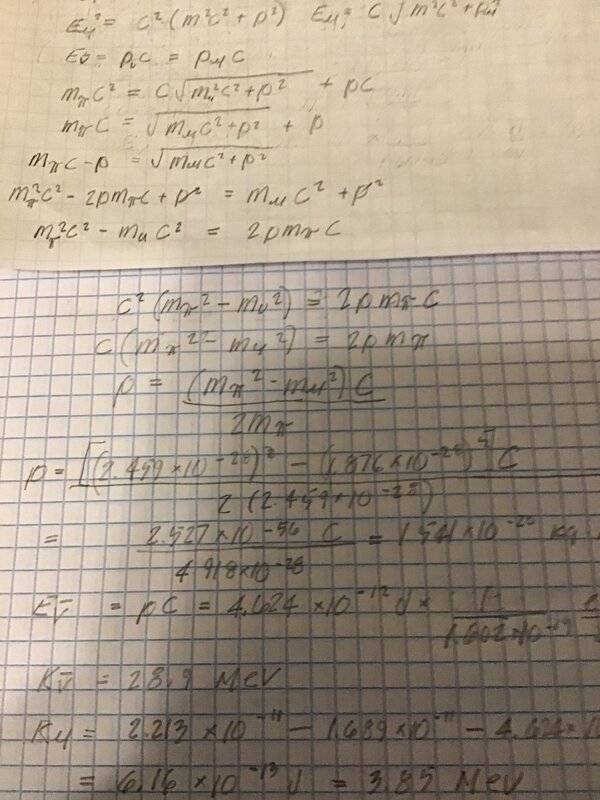 Eμ² = c²·(m²c² + p²) Eμ = c√m²c² + pμ²
Eν̄ = pνc = pμc
mπc² = c√mμ²c² + p² + pc
mπc = √mμc² + p² + p
mπc - p = √mμc² + p²
mπ²c² - 2pmπc + p² = mμc² + p²
mπ²c² - mμc² = 2pmπc
c²(mπ² - mμ²) = 2pmπc
c(mπ² - mμ²) = 2pmπ
p = (mπ² - mμ²)c
2mπ
p = [(2.459×10⁻²⁸)² - (1.876×10⁻²⁸)²]c
2(2.459×10⁻²⁸)
= 2.527×10⁻⁵⁶ c = 1.541×10⁻²⁰ kg
4.918×10⁻²⁸
Eν̄ = pc = 4.624×10⁻¹² J ×
1.602×10⁻¹⁹
Kν̄ = 28.9 MeV
Kμ = 2.213×10⁻¹¹ - 1.689×10⁻¹¹ - 4.624×
= 6.16×10⁻¹³ J = 3.85 MeV